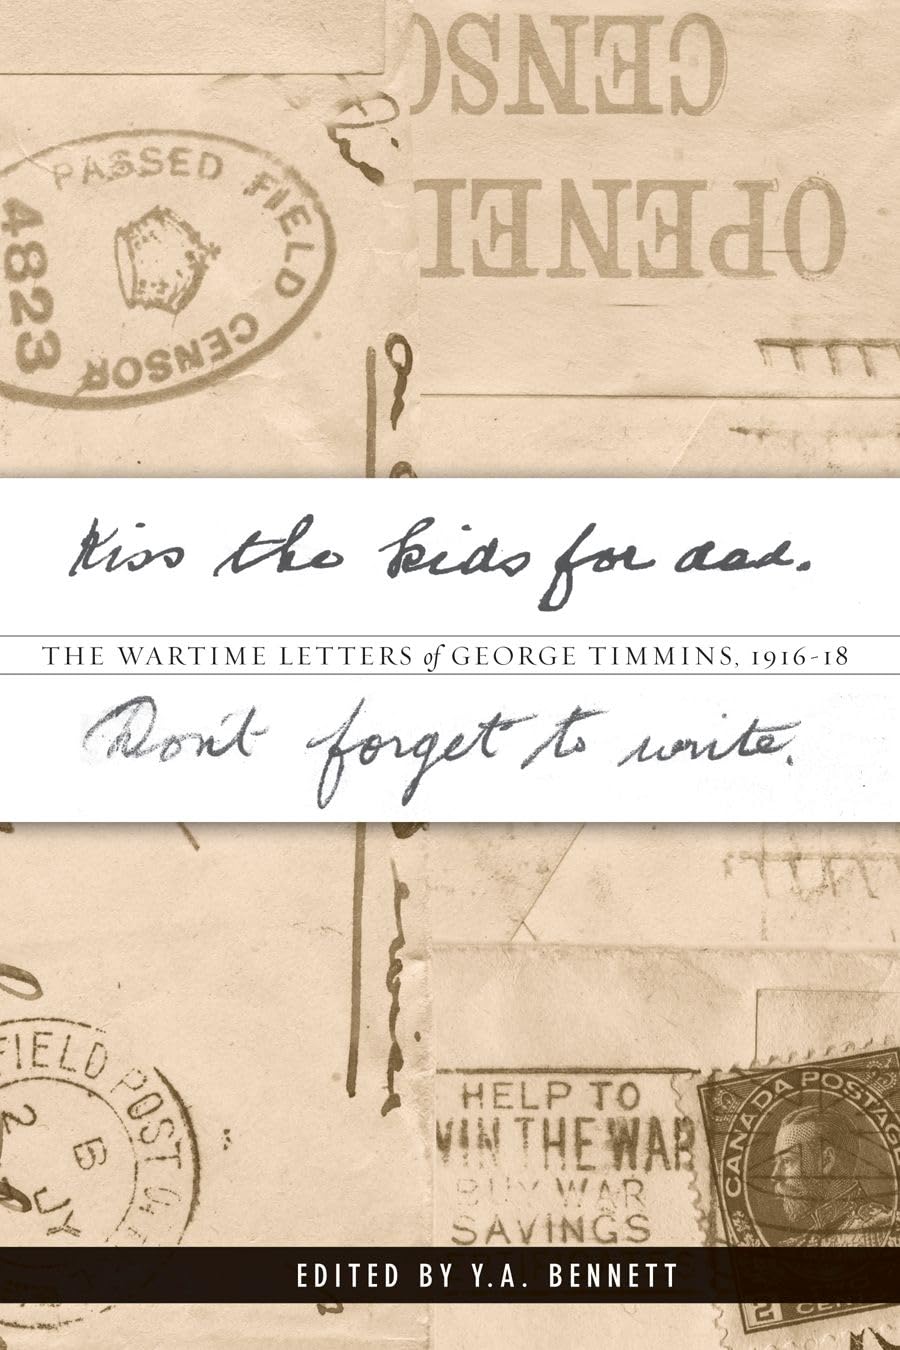 CENSO
OPENE
PASSED FIELD CENSOR
4823
Kiss the kids for dad.
THE WARTIME LETTERS of GEORGE TIMMINS, 1916-18
Don't forget to write.
FIELD POST
2
B
JY
HELP TO
WIN THE WAR
BUY WAR
SAVINGS
CANADA POSTAGE
2 CE
EDITED BY Y.A. BENNETT